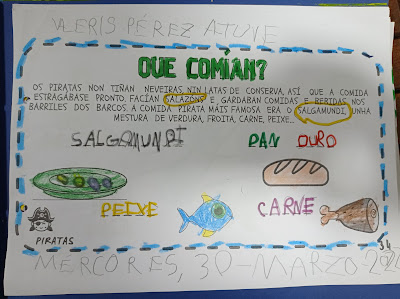 VALERIS PÉREZ ATUVE
QUE COMÍAN?
OS PIRATAS NON TIÑAN NEVEIRAS NIN LATAS DE CONSERVA, ASÍ QUE A COMIDA
ESTRAGÁBASE PRONTO. FACÍAN SALAZÓNS E GARDABAN COMIDAS E BEBIDAS NOS
BARRILES DOS BARCOS. A COMIDA PIRATA MÁIS FAMOSA ERA O SALGAMUNDI, UNHA
MESTURA DE VERDURA, FROITA, CARNE, PEIXE...
SALGAMUNDI
PAN OURO
PEIXE
CARNE
PIRATAS
MÉRCORES, 30-MARZO 202